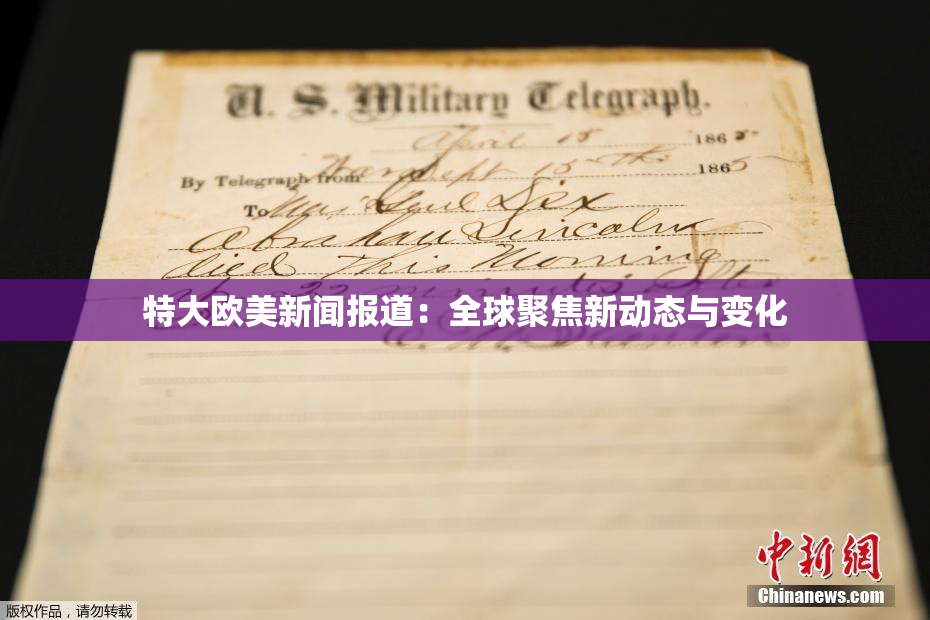 U. S. Military Telegraph.
April 15 1865
By Telegraph from War Dept 15th 1865
To Maj Genl Dix
Abraham Lincoln
died This Morning
22 minutes after
特大欧美新闻报道：全球聚焦新动态与变化
E. M. Stanton
中新网
Chinanews.com
版权作品，请勿转载